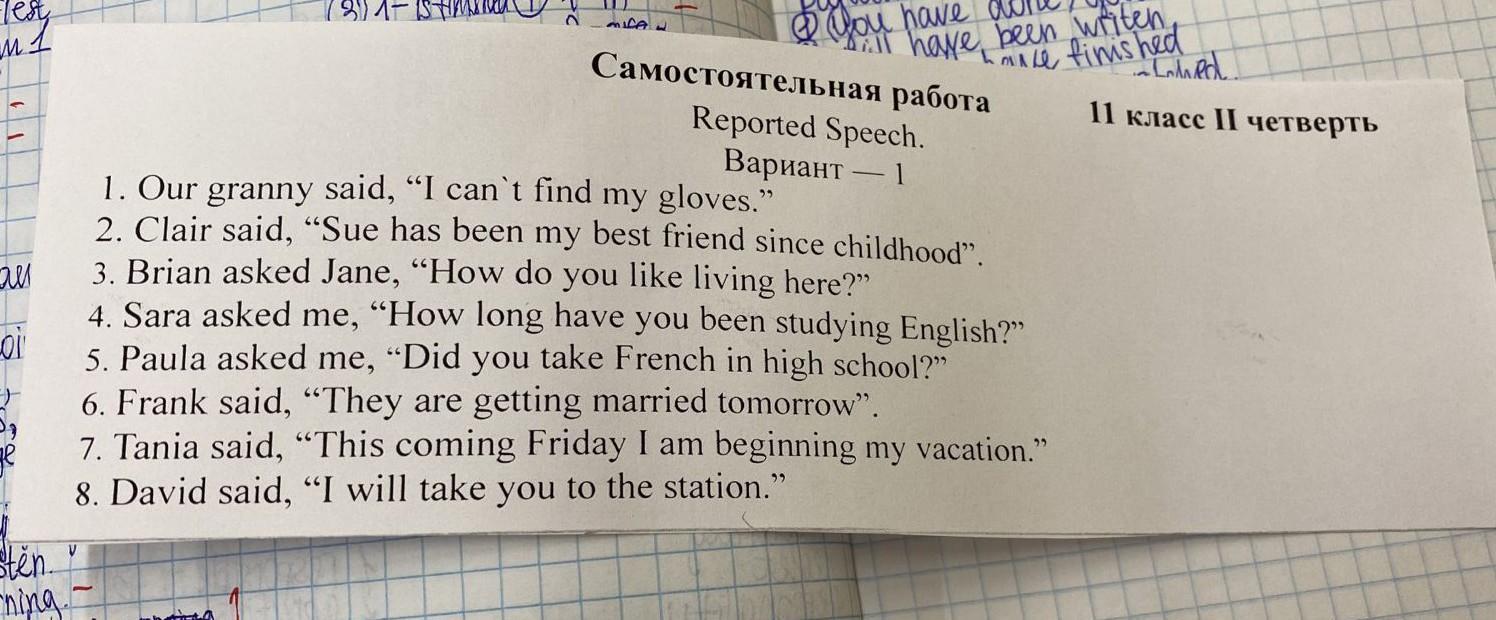 you have done
will have been writen
have finished
Самостоятельная работа 11 класс II четверть
Reported Speech.
Вариант — 1
1. Our granny said, “I can`t find my gloves.”
2. Clair said, “Sue has been my best friend since childhood”.
3. Brian asked Jane, “How do you like living here?”
4. Sara asked me, “How long have you been studying English?”
5. Paula asked me, “Did you take French in high school?”
6. Frank said, “They are getting married tomorrow”.
7. Tania said, “This coming Friday I am beginning my vacation.”
8. David said, “I will take you to the station.”